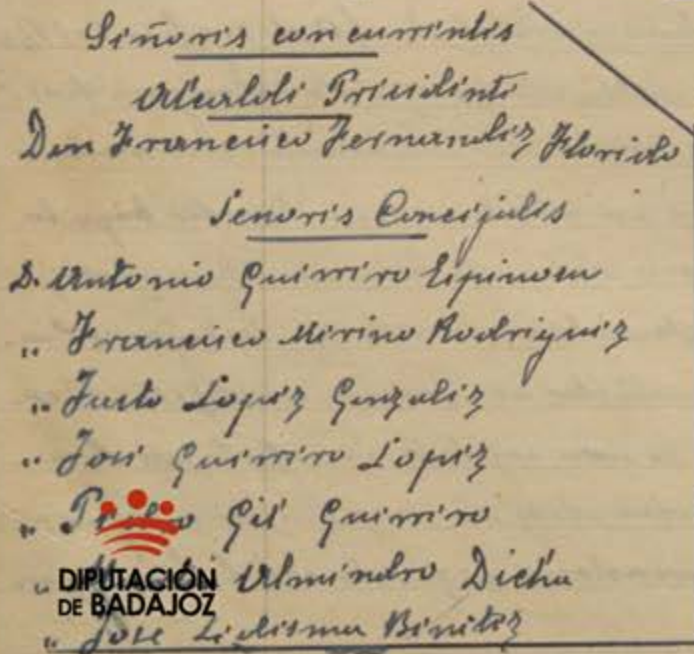 Señores concurrentes
Alcalde Presidente
Don Francisco Fernandez Florido
Señores Concejales
D. Antonio Guerrero Espinosa
" Francisco Merino Rodriguez
" Justo Lopez Gonzalez
" José Guerrero Lopez
" Pedro Gil Guerrero
" Almendro
" Jose Ledesma Benitez
DIPUTACIÓN
DE BADAJOZ